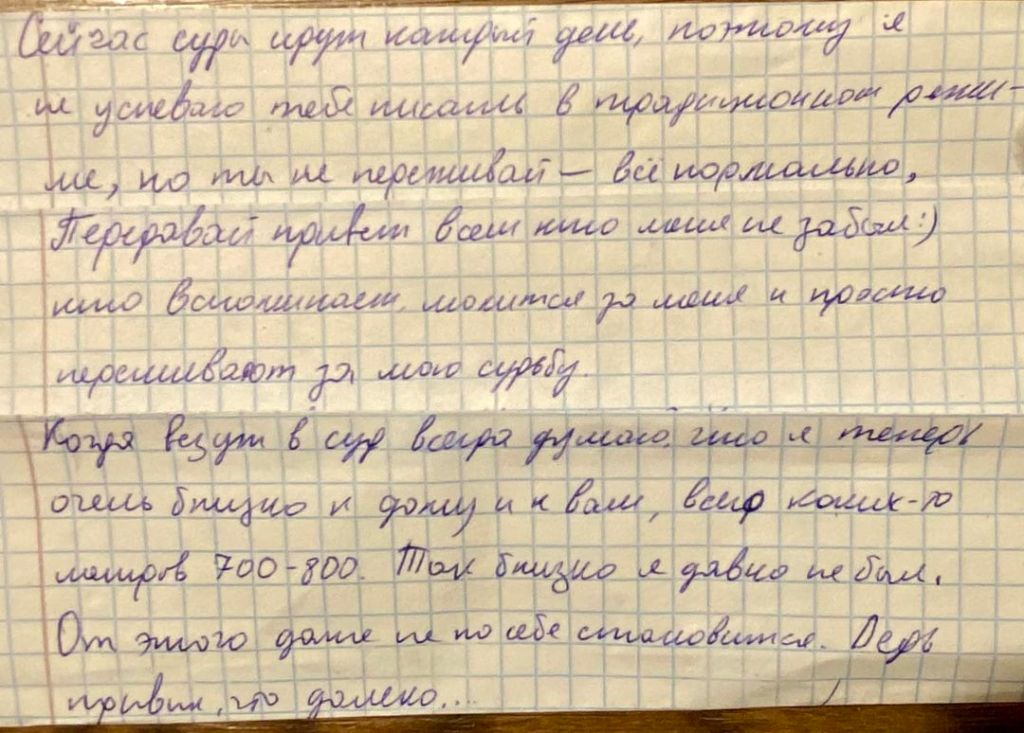 Сейчас суды идут каждый день, поэтому я
не успеваю тебе писать в традиционном режи-
ме, но ты не переживай — всё нормально,
Передавай привет всем кто меня не забыл:)
кто вспоминает, молится за меня и просто
переживают за мою судьбу.
Когда везут в суд всегда думаю, что я теперь
очень близко к дому и к вам, всего каких-то
метров 700-800. Так близко я давно не был.
От этого даже не по себе становится. Ведь
привык, что далеко...